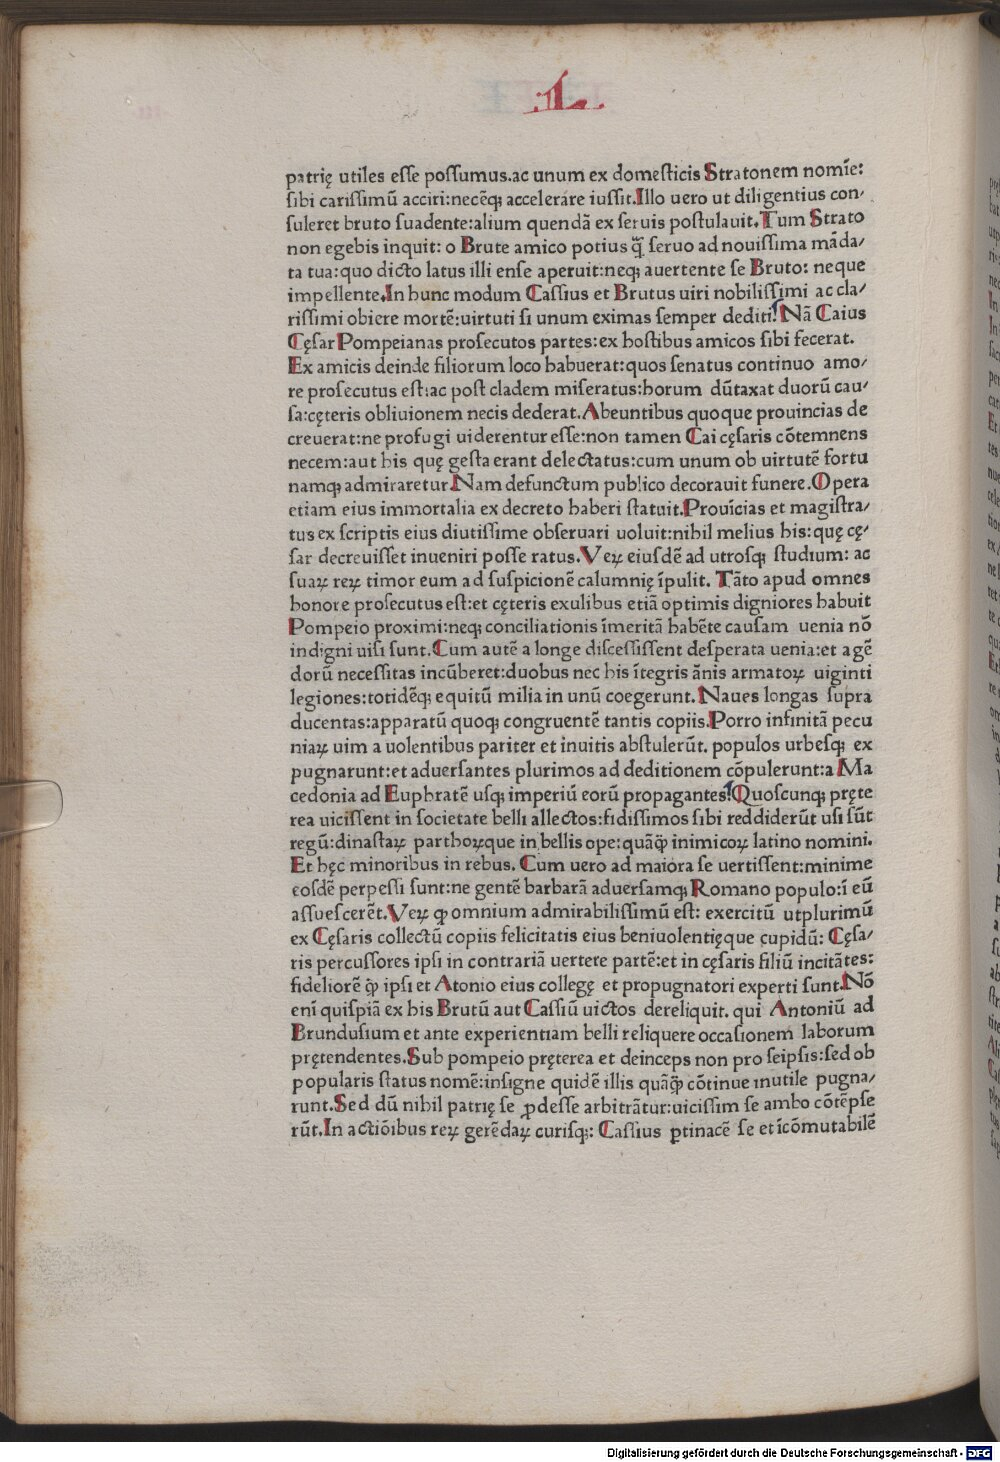 .L.
patrię utiles esse possumus.ac unum ex domesticis Stratonem nomīe:
sibi carissimū acciri:necēq; accelerare iussit.Illo uero ut diligentius con-
suleret bruto suadente:alium quendā ex seruis postulauit.Tum Strato
non egebis inquit: o Brute amico potius q̄̃ seruo ad nouissima māda-
ta tua:quo dicto latus illi ense aperuit:neq; auertente se Bruto: neque
impellente.In hunc modum Cassius et Brutus uiri nobilissimi ac cla-
rissimi obiere mortē:uirtuti si unum eximas semper dediti. Nā Caius
Cęsar Pompeianas prosecutos partes:ex hostibus amicos sibi fecerat.
Ex amicis deinde filiorum loco habuerat:quos senatus continuo amo-
re prosecutus est:ac post cladem miseratus:horum dūtaxat duorū cau-
sa:cęteris obliuionem necis dederat.Abeuntibus quoque prouincias de
creuerat:ne profugi uiderentur esse:non tamen Cai cęsaris cōtemnens
necem:aut his quę gesta erant delectatus:cum unum ob uirtutē fortu
namq; admiraretur.Nam defunctum publico decorauit funere.Opera
etiam eius immortalia ex decreto haberi statuit.Prouīcias et magistra-
tus ex scriptis eius diutissime obseruari uoluit:nihil melius his:quę cę-
sar decreuisset inueniri posse ratus.Veꝝ eiusdē ad utrosq; studium: ac
suaꝝ reꝝ timor eum ad suspicionē calumnię īpulit. Tāto apud omnes
honore prosecutus est:et cęteris exulibus etiā optimis digniores habuit
Pompeio proximi:neq; conciliationis īmeritā habēte causam uenia nō
indigni uisi sunt.Cum autē a longe discessissent desperata uenia:et agē
dorū necessitas incūberet:duobus nec his ītegris ānis armatoꝝ uiginti
legiones:totidēq; equitū milia in unū coegerunt.Naues longas supra
ducentas:apparatū quoq; congruentē tantis copiis.Porro infinitā pecu
niaꝝ uim a uolentibus pariter et inuitis abstulerūt. populos urbesq; ex
pugnarunt:et aduersantes plurimos ad deditionem cōpulerunt:a Ma
cedonia ad Euphratē usq; imperiū eorū propagantes. Quoscunq; pręte
rea uicissent in societate belli allectos:fidissimos sibi reddiderūt usi sūt
regū:dinastaꝝ parthoꝝque in bellis ope:quāq̄̃ inimicoꝝ latino nomini.
Et hęc minoribus in rebus. Cum uero ad maiora se uertissent:minime
eosdē perpessi sunt:ne gentē barbarā aduersamq; Romano populo:ī eū
assuescerēt.Veꝝ ꝙ omnium admirabilissimū est: exercitū utplurimū
ex Cęsaris collectū copiis felicitatis eius beniuolentięque cupidū: Cęsa-
ris percussores ipsi in contrariā uertere partē:et in cęsaris filiū incitātes:
fideliorē ꝙ̃ ipsi et Atonio eius collegę et propugnatori experti sunt.Nō
enī quispiā ex his Brutū aut Cassiū uictos dereliquit. qui Antoniū ad
Brundusium et ante experientiam belli reliquere occasionem laborum
prętendentes.Sub pompeio pręterea et deinceps non pro seipsis:sed ob
popularis status nomē:insigne quidē illis quāq̄̃ cōtinue inutile pugna-
runt.Sed dū nihil patrię se ꝓdesse arbitrātur:uicissim se ambo cōtēpse
rūt.In actiōibus reꝝ gerēdaꝝ curisq;: Cassius ꝑtinacē se et īcōmutabilē
Digitalisierung gefördert durch die Deutsche Forschungsgemeinschaft - DFG